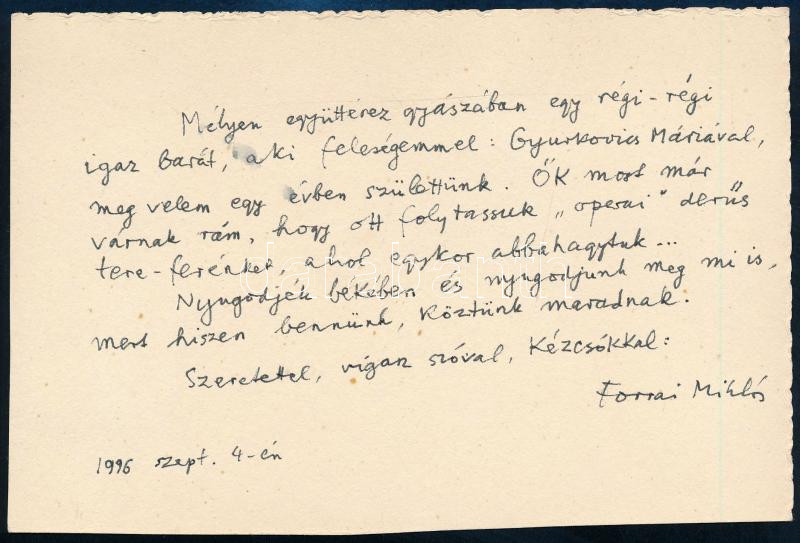 Mélyen együttérez gyászában egy régi-régi
igaz barát, aki feleségemmel: Gyurkovics Máriával,
meg velem egy évben születtünk. Ők most már
várnak rám, hogy ott folytassuk „operai" derűs
tere-ferénket, ahol egykor abbahagytuk...
Nyugodjék békében és nyugodjunk meg mi is,
mert hiszen bennünk, köztünk maradnak.
Szeretettel, vigasz szóval, kézcsókkal:
Forrai Miklós
1996 szept. 4-én